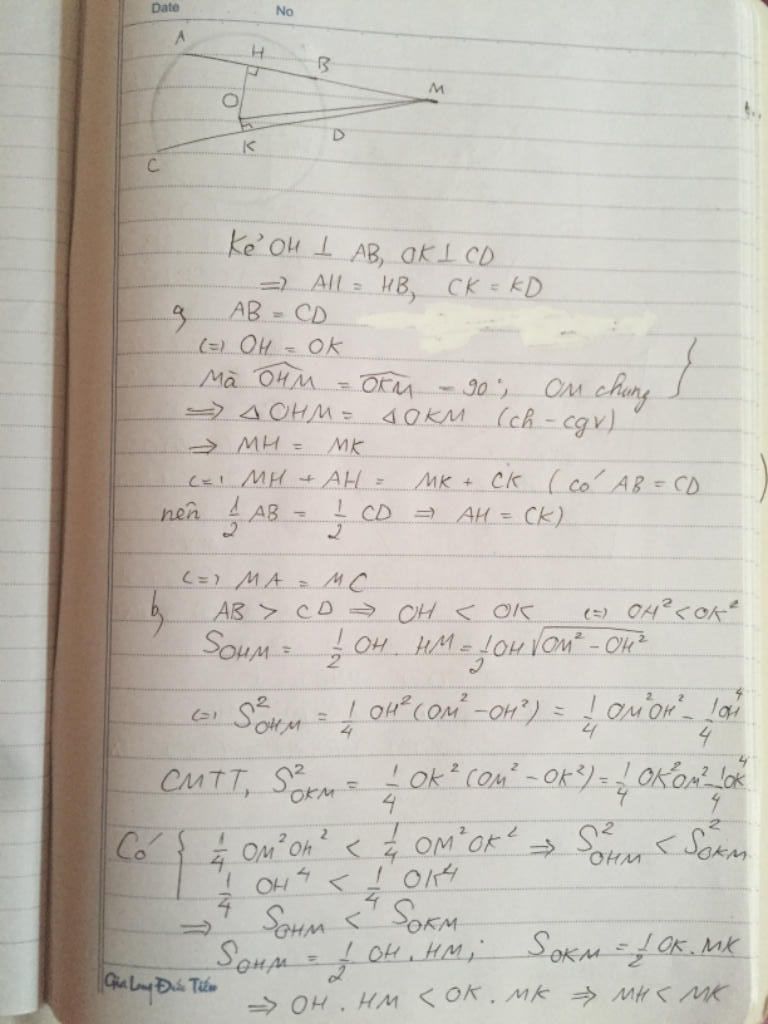 Date No
A H B
M
O
K D
C
Kẻ OH ⊥ AB, OK ⊥ CD
=> AH = HB, CK = KD
a, AB = CD
(=) OH = OK
Mà OHM = OKM = 90°, OM chung
=> Δ OHM = Δ OKM (ch - cgv)
=> MH = MK
(=) MH + AH = MK + CK (có AB = CD
nên 1/2 AB = 1/2 CD => AH = CK)
(=) MA = MC
b, AB > CD => OH < OK (=) OH² < OK²
S_OHM = 1/2 OH . HM = 1/2 OH √(OM² - OH²)
(=) S²_OHM = 1/4 OH² (OM² - OH²) = 1/4 OM² OH² - 1/4 OH⁴
CMTT, S²_OKM = 1/4 OK² (OM² - OK²) = 1/4 OK² OM² - 1/4 OK⁴
Có { 1/4 OM² OH² < 1/4 OM² OK² => S²_OHM < S²_OKM
1/4 OH⁴ < 1/4 OK⁴
=> S_OHM < S_OKM
S_OHM = 1/2 OH . HM; S_OKM = 1/2 OK . MK
=> OH . HM < OK . MK => MH < MK